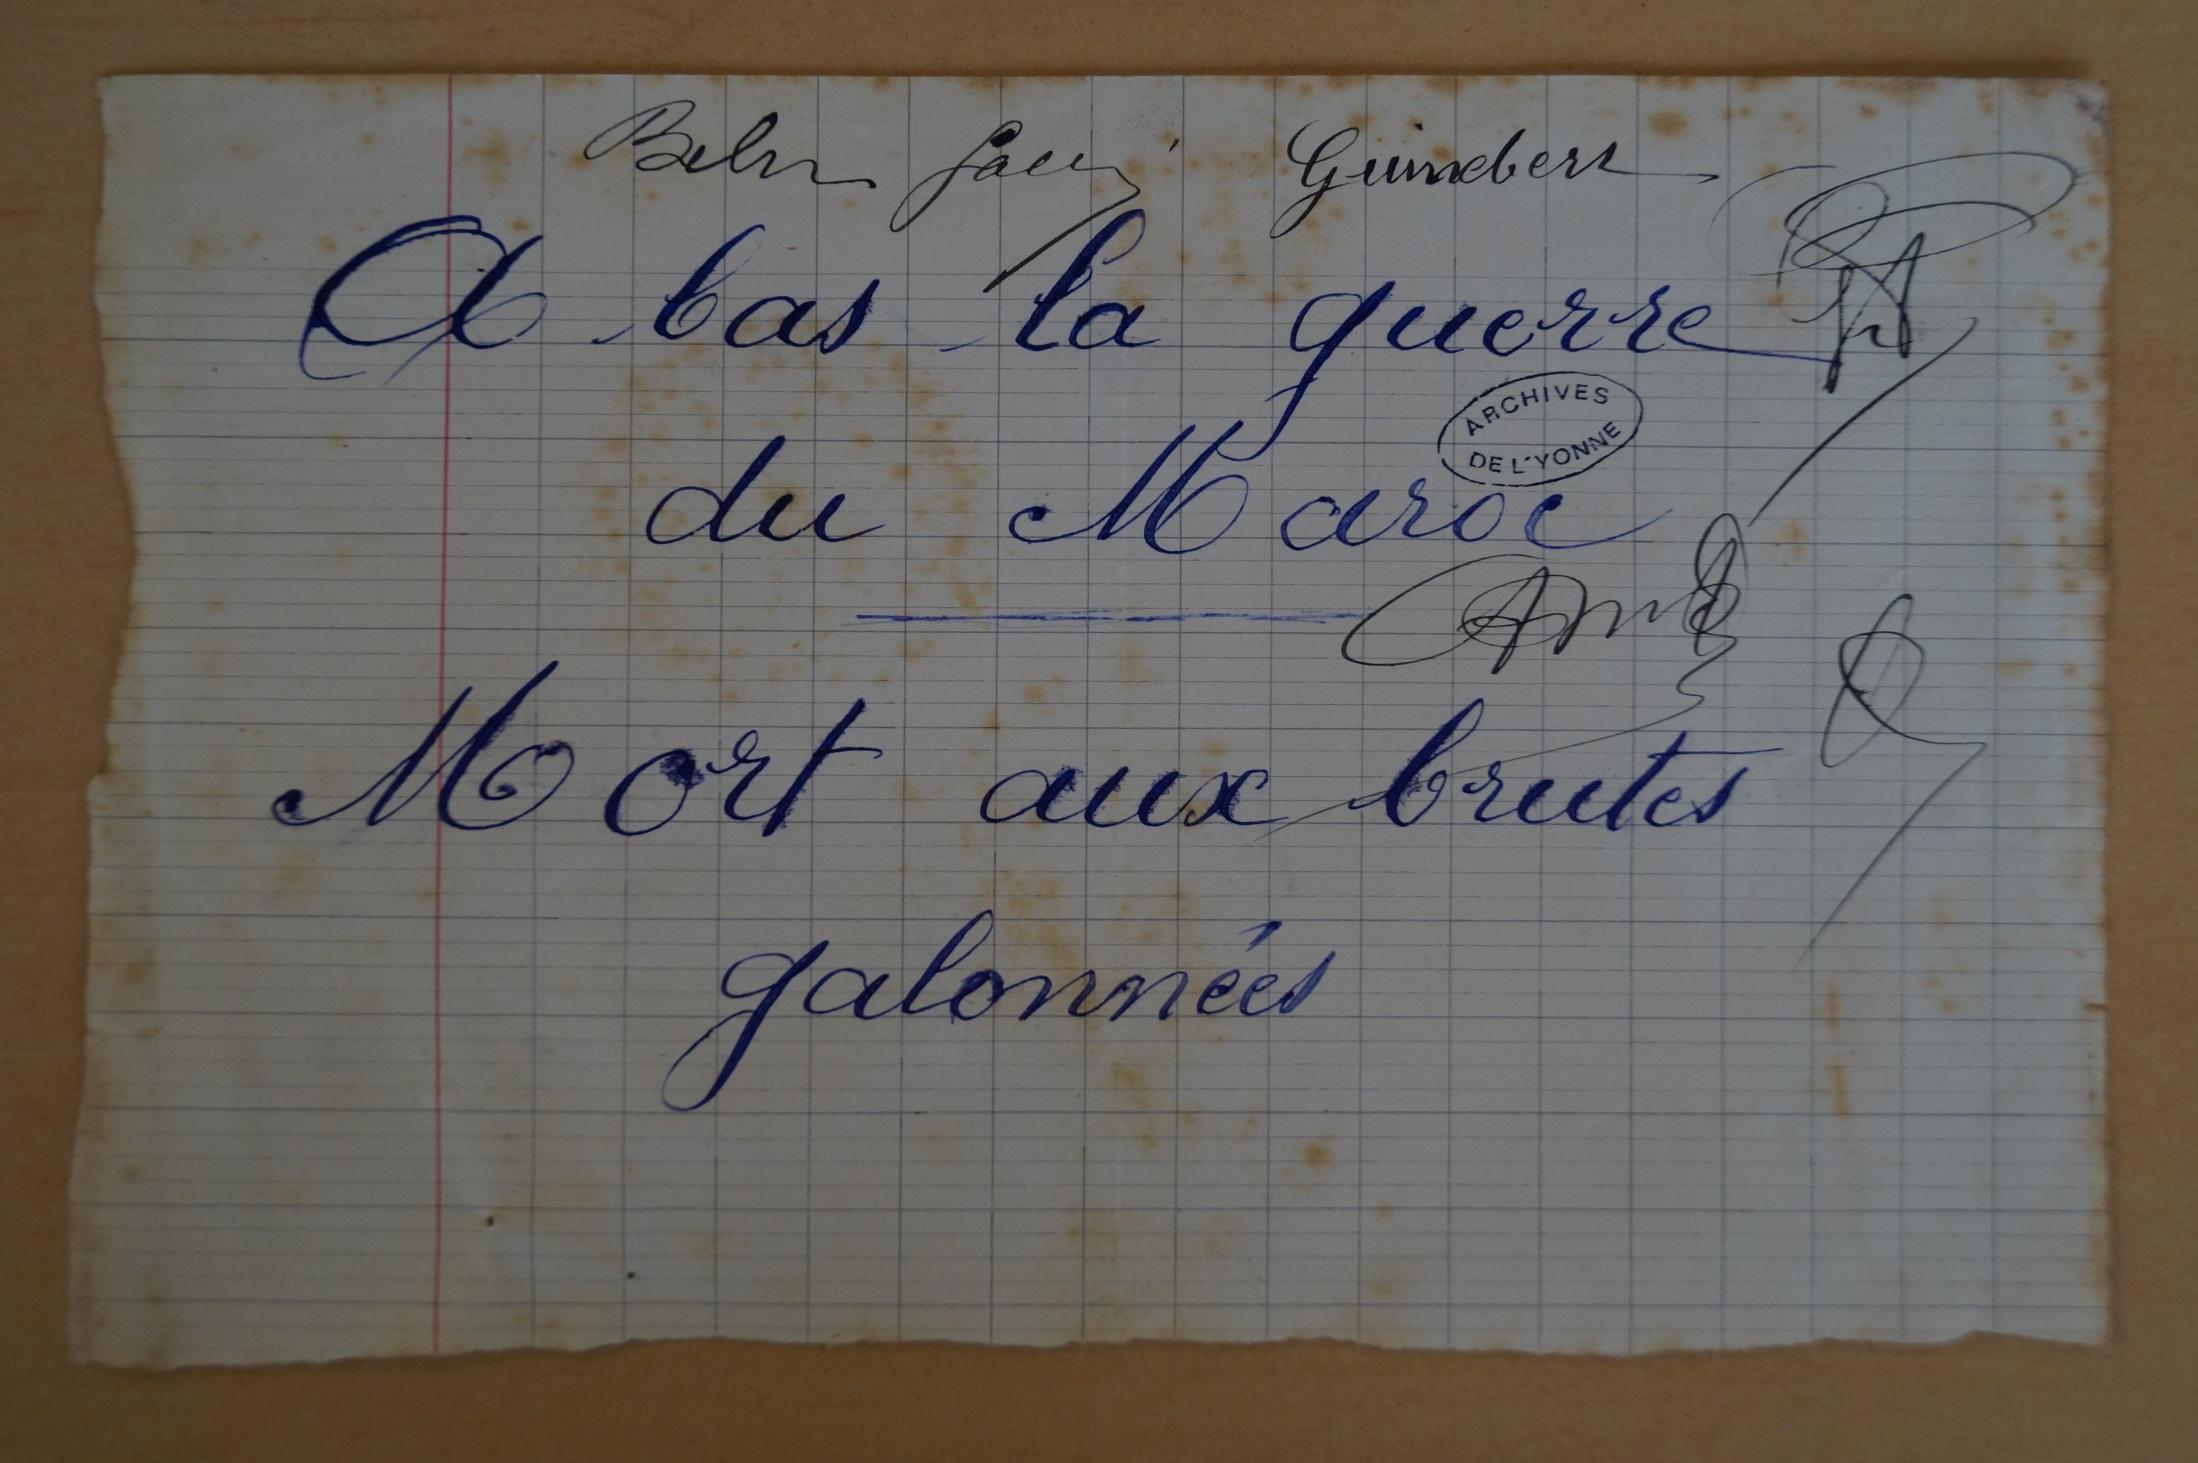 Guimbert
A bas la guerre
du Maroc
ARCHIVES
DE L'YONNE
Mort aux brutes
galonnées